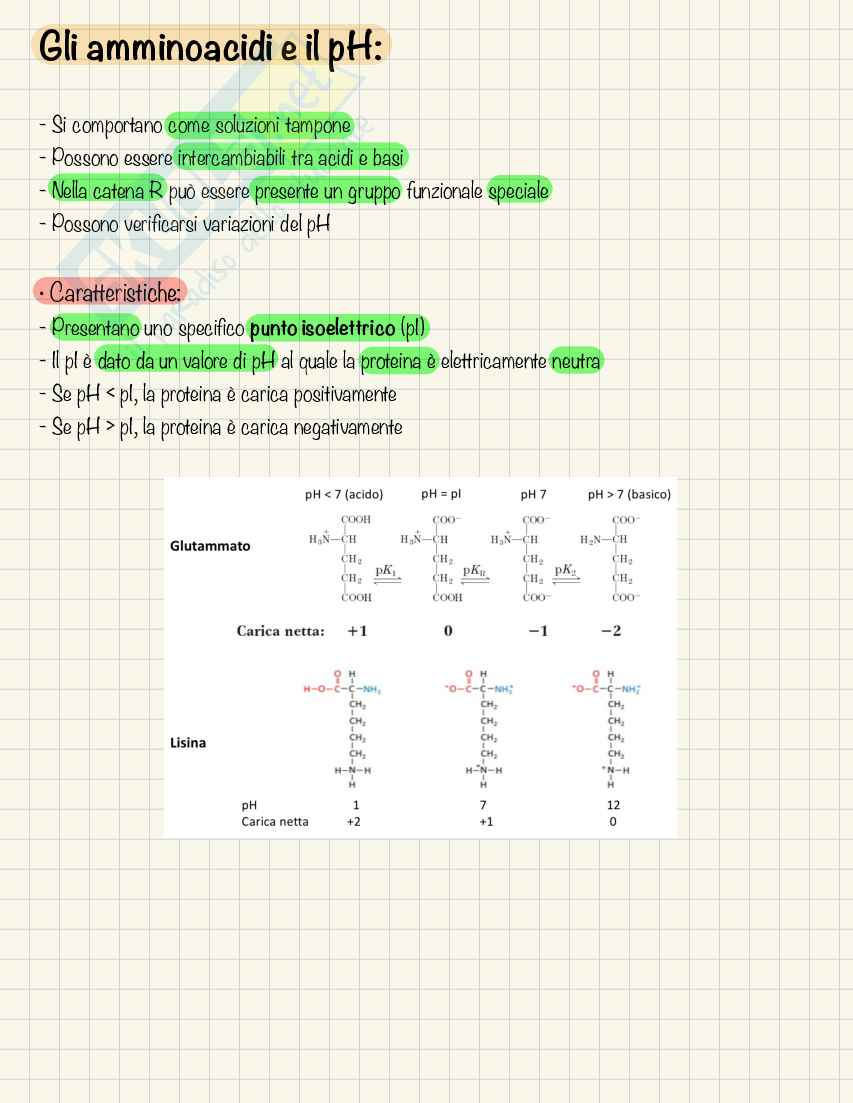 Gli amminoacidi e il pH:
- Si comportano come soluzioni tampone
- Possono essere intercambiabili tra acidi e basi
- Nella catena R può essere presente un gruppo funzionale speciale
- Possono verificarsi variazioni del pH
• Caratteristiche:
- Presentano uno specifico punto isoelettrico (pI)
- Il pI è dato da un valore di pH al quale la proteina è elettricamente neutra
- Se pH < pI, la proteina è carica positivamente
- Se pH > pI, la proteina è carica negativamente
pH < 7 (acido) pH = pI pH 7 pH > 7 (basico)
COOH COO⁻ COO⁻ COO⁻
Glutammato H₃N⁺—CH H₃N⁺—CH H₃N⁺—CH H₂N—CH
CH₂ CH₂ CH₂ CH₂
CH₂ pK₁ CH₂ pK_R CH₂ pK₂ CH₂
COOH COOH COO⁻ COO⁻
Carica netta: +1 0 −1 −2
O H O H O H
H–O–C–C–NH₂ ⁻O–C–C–NH₃⁺ ⁻O–C–C–NH₃⁺
CH₂ CH₂ CH₂
CH₂ CH₂ CH₂
Lisina CH₂ CH₂ CH₂
CH₂ CH₂ CH₂
H–N–H H–⁺N–H ⁺N–H
H H H
pH 1 7 12
Carica netta +2 +1 0